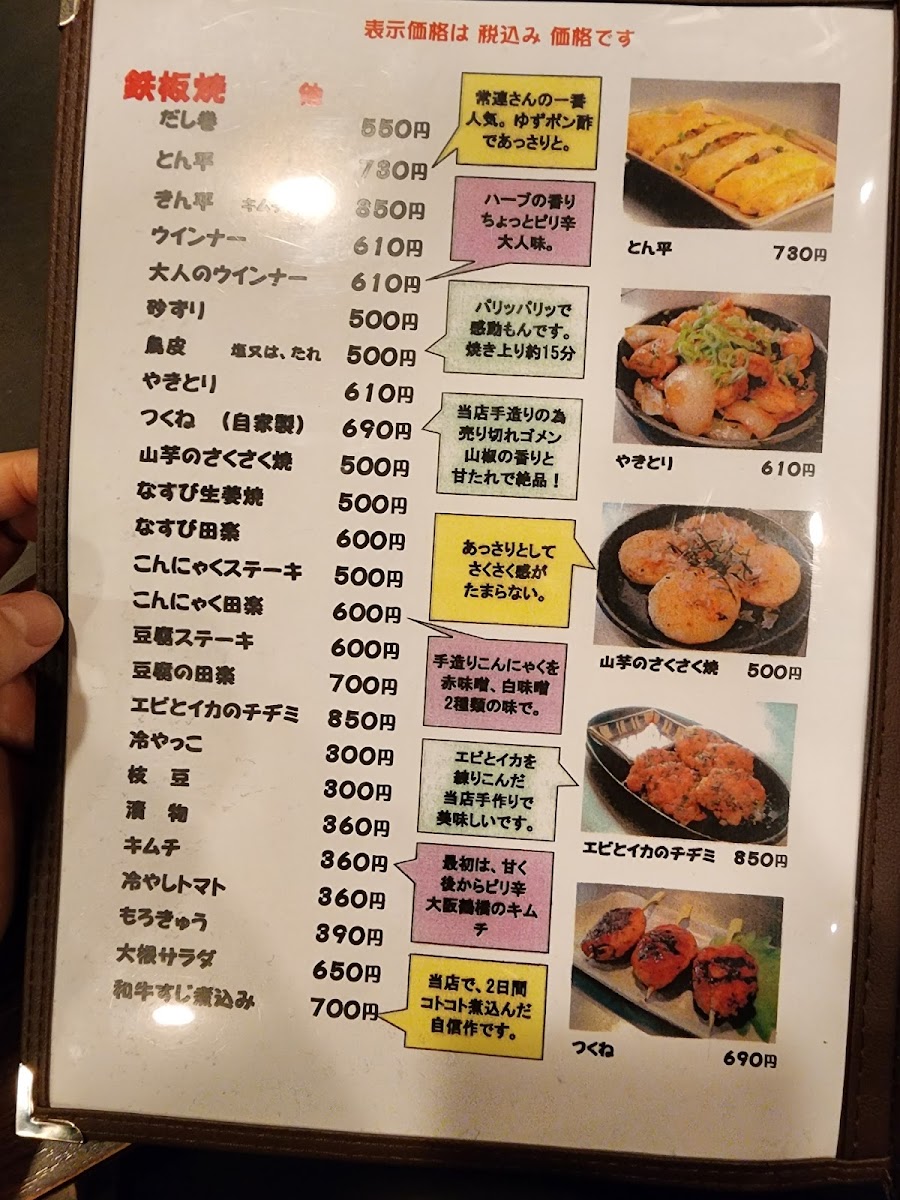 表示価格は 税込み 価格です
鉄板焼 他
だし巻 550円
とん平 730円
きん平 850円
ウインナー 610円
大人のウインナー 610円
砂ずり 500円
鳥皮 塩又は、たれ 500円
やきとり 610円
つくね (自家製) 690円
山芋のさくさく焼 500円
なすび生姜焼 500円
なすび田楽 600円
こんにゃくステーキ 500円
こんにゃく田楽 600円
豆腐ステーキ 600円
豆腐の田楽 700円
エビとイカのチヂミ 850円
冷やっこ 300円
枝 豆 300円
漬 物 360円
キムチ 360円
冷やしトマト 360円
もろきゅう 390円
大根サラダ 650円
和牛すじ煮込み 700円
常連さんの一番
人気。ゆずポン酢
であっさりと。
ハーブの香り
ちょっとピリ辛
大人味。
パリッパリッで
感動もんです。
焼き上り約15分
当店手造りの為
売り切れゴメン
山椒の香りと
甘たれで絶品!
あっさりとして
さくさく感が
たまらない。
手造りこんにゃくを
赤味噌、白味噌
2種類の味で。
エビとイカを
練りこんだ
当店手作りで
美味しいです。
最初は、甘く
後からピリ辛
大阪鶴橋のキム
チ
当店で、2日間
コトコト煮込んだ
自信作です。
とん平 730円
やきとり 610円
山芋のさくさく焼 500円
エビとイカのチヂミ 850円
つくね 690円